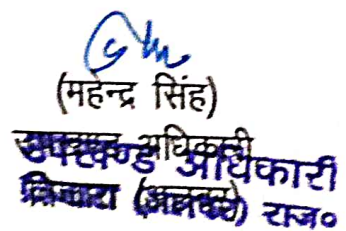 (महेन्द्र सिंह)
उपखण्ड अधिकारी
तिजारा (अलवर) राज०